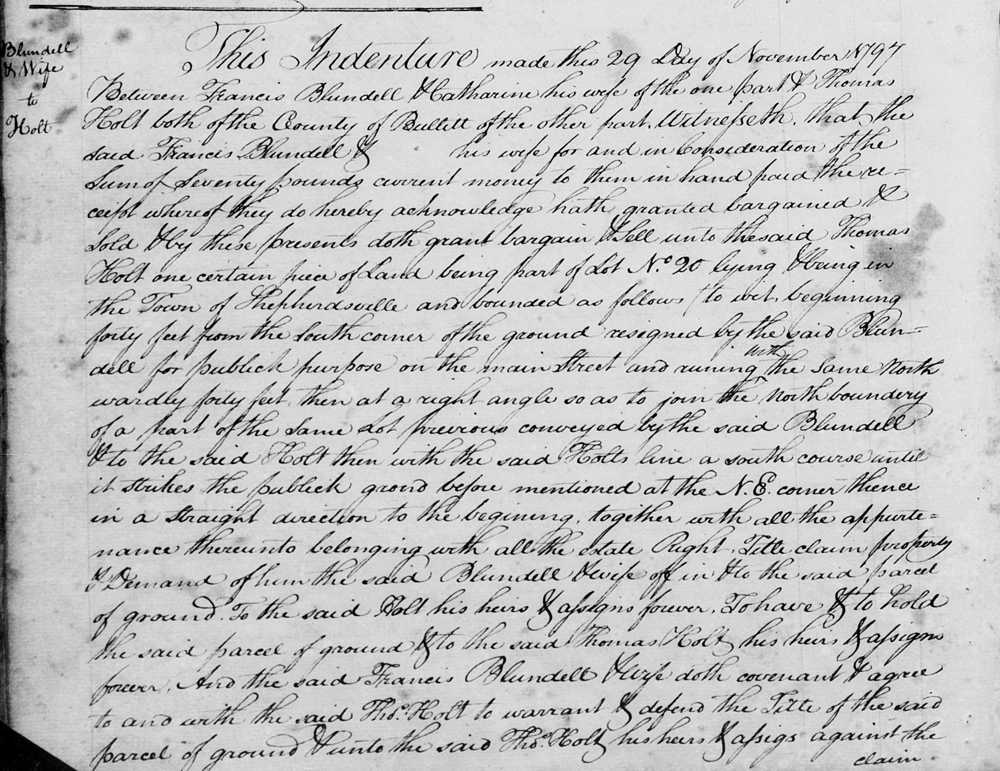 Blundell
& Wife
to
Holt
This Indenture made this 29 Day of November 1797
Between Francis Blundell & Catharine his wife of the one part & Thomas
Holt both of the County of Bullitt of the other part. Witnesseth, that the
said Francis Blundell & his wife for and in Consideration of the
Sum of Seventy pounds current money to them in hand paid the re-
ceipt whereof they do hereby acknowledge hath granted bargained &
Sold & by these presents doth grant bargain & Sell unto the said Thomas
Holt one certain piece of Land being part of Lot No. 20 lying & being in
the Town of Shepherdsville and bounded as follows to wit, beginning
forty feet from the South corner of the ground resigned by the said Blun-
dell for publick purpose on the main Street and runing with the same North
wardly forty feet then at a right angle so as to join the North boundery
of a part of the same Lot previous conveyed by the said Blundell
& to the said Holt then with the said Holts line a south course until
it strikes the publick ground before mentioned at the N.E. corner thence
in a straight direction to the begining, together with all the appurte-
nance thereunto belonging with all the estate Right, Title claim property
& Demand of him the said Blundell & wife off in & to the said parcel
of ground. To the said Holt his heirs & assigns forever, To have & to hold
the said parcel of ground & to the said Thomas Holt his heirs & assigns
forever, And the said Francis Blundell & wife doth covenant & agree
to and with the said Thos. Holt to warrant & defend the Title of the said
parcel of ground & unto the said Thos. Holt his heirs & assigs against the
claim